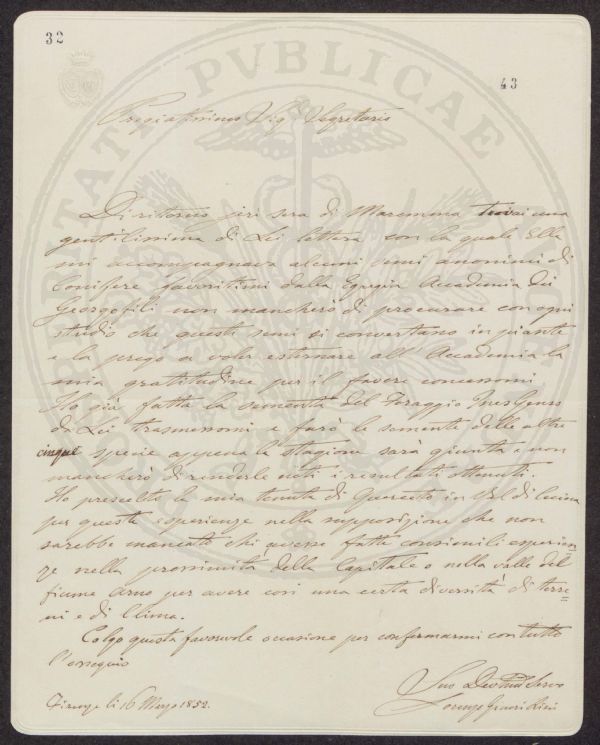 32
43
PROSPERITATI PVBLICAE AVGENDAE
Pregiatissimo Sig. Segretario
Di ritorno jeri sera di Maremma trovai una
gentilissima di Lei lettera con la quale Ella
mi accompagnava alcuni semi anonimi di
Conifere favoritimi dalla Egregia Accademia dei
Georgofili non mancherò di procurare con ogni
studio che questi semi si convertano in piante
e la prego a voler esternare all'Accademia la
mia gratitudine per il favore concessomi
Ho già fatta la sementa del Foraggio
di Lei trasmessomi e farò le sementa delle altre
cinque specie appena la stagione sarà giunta e non
mancherò di renderle noti i resultati ottenuti
Ho prescelto la mia tenuta di Querceto in Val di Cecina
per queste esperienze nella supposizione che non
sarebbe mancato chi avesse fatte consimili esperien=
ze nella prossimità della Capitale o nella valle del
fiume Arno per avere così una certa diversità di terre=
ni e di Clima.
Colgo questa favorevole occasione per confermarmi con tutto
l'ossequio
Suo Devmo Servo
Firenze li 16 Marzo 1852.
Lorenzo Ginori Lisci